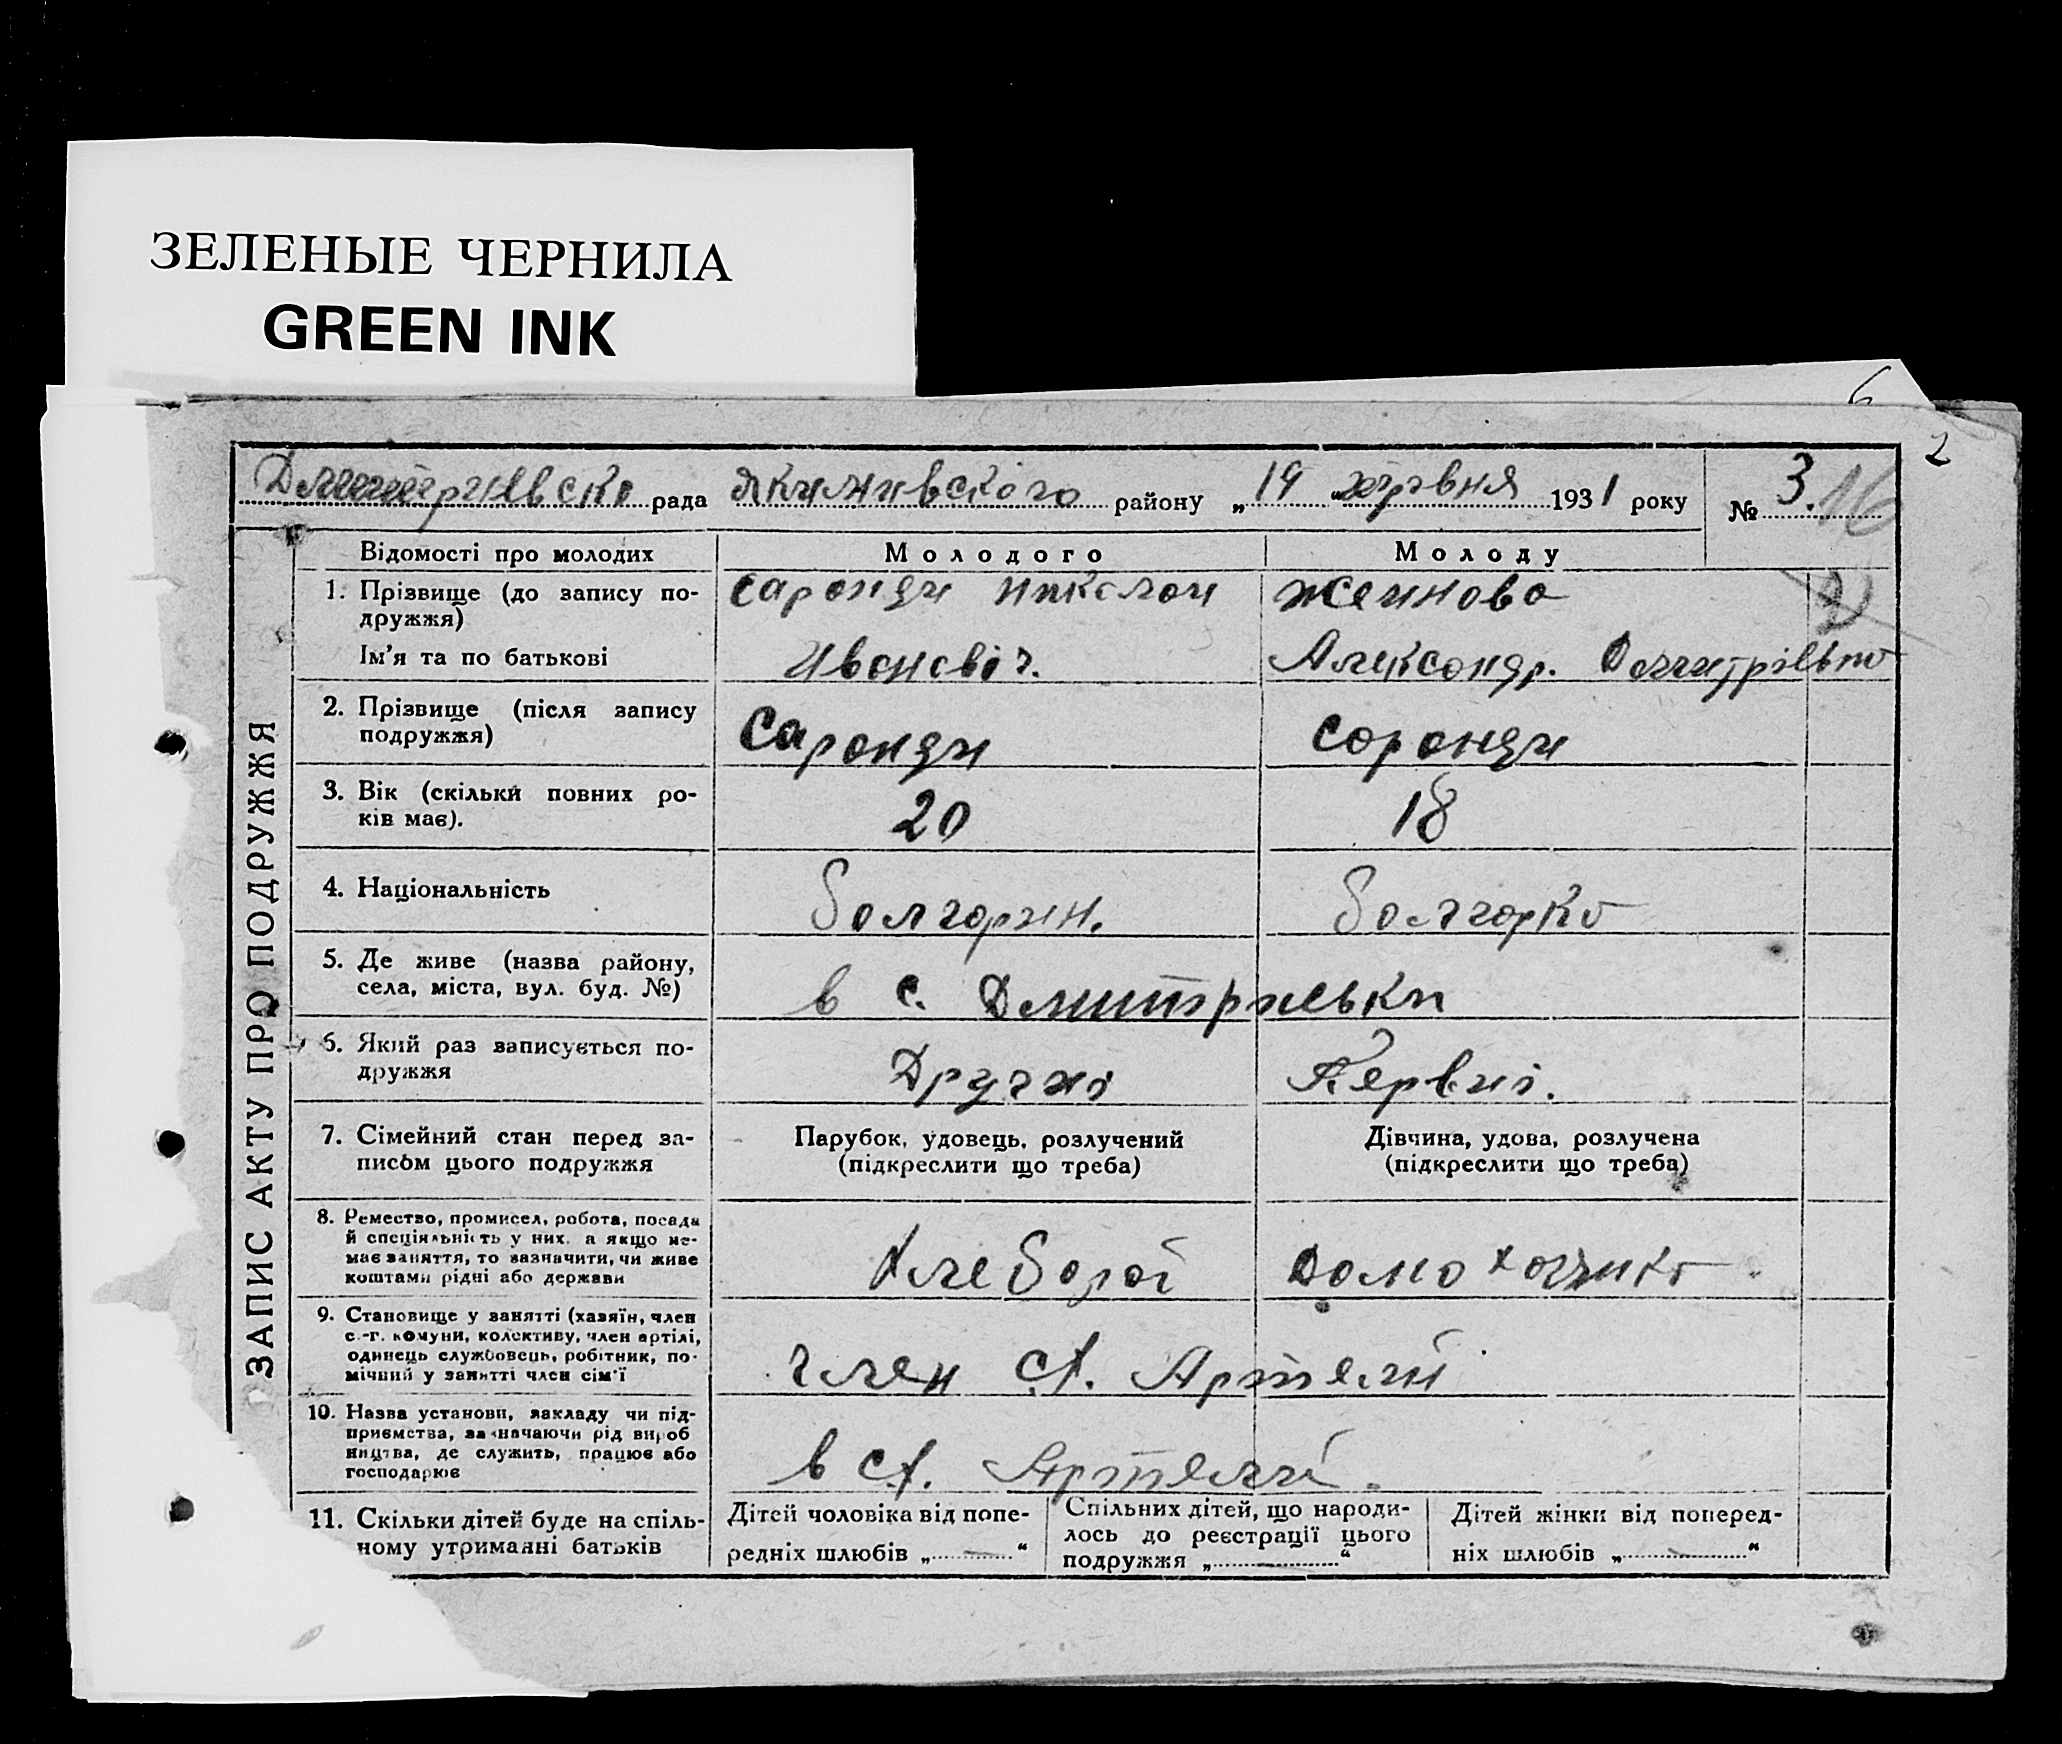 ЗЕЛЕНЫЕ ЧЕРНИЛА
GREEN INK
6
2
рада Якимивского району „19 червня 1931 року № 3. 16
ЗАПИС АКТУ ПРО ПОДРУЖЖЯ
Відомості про молодих Молодого Молоду
1. Прізвище (до запису по-
дружжя)
Саронди Николай Женнова
Ім'я та по батькові Ивановіч. Александр.
2. Прізвище (після запису
подружжя)
Саронди Соронди
3. Вік (скільки повних ро-
ків має).
20 18
4. Національність Болгорин. Болгорка
5. Де живе (назва району,
села, міста, вул. буд. №)
в с. Дмитрівьки
6. Який раз записується по-
дружжя
Другий Первий.
7. Сімейний стан перед за-
писом цього подружжя
Парубок, удовець, розлучений
(підкреслити що треба)
Дівчина, удова, розлучена
(підкреслити що треба)
8. Ремество, промисел, робота, посада
й спеціяльність у них, а якщо не-
має заняття, то зазначити, чи живе
коштами рідні або держави
Хлебороб
9. Становище у занятті (хазяїн, член
с.-г. комуни, колективу, член артілі,
одинець службовець, робітник, по-
мічний у занятті член сім'ї
член Артели
10. Назва установи, закладу чи під-
приємства, зазначаючи рід вироб
ництва, де служить, працює або
господарює
в Артелі.
11. Скільки дітей буде на спіль-
ному утриманні батьків
Дітей чоловіка від попе-
редніх шлюбів „—“
Спільних дітей, що народи-
лось до реєстрації цього
подружжя „—“
Дітей жінки від поперед-
ніх шлюбів „—“